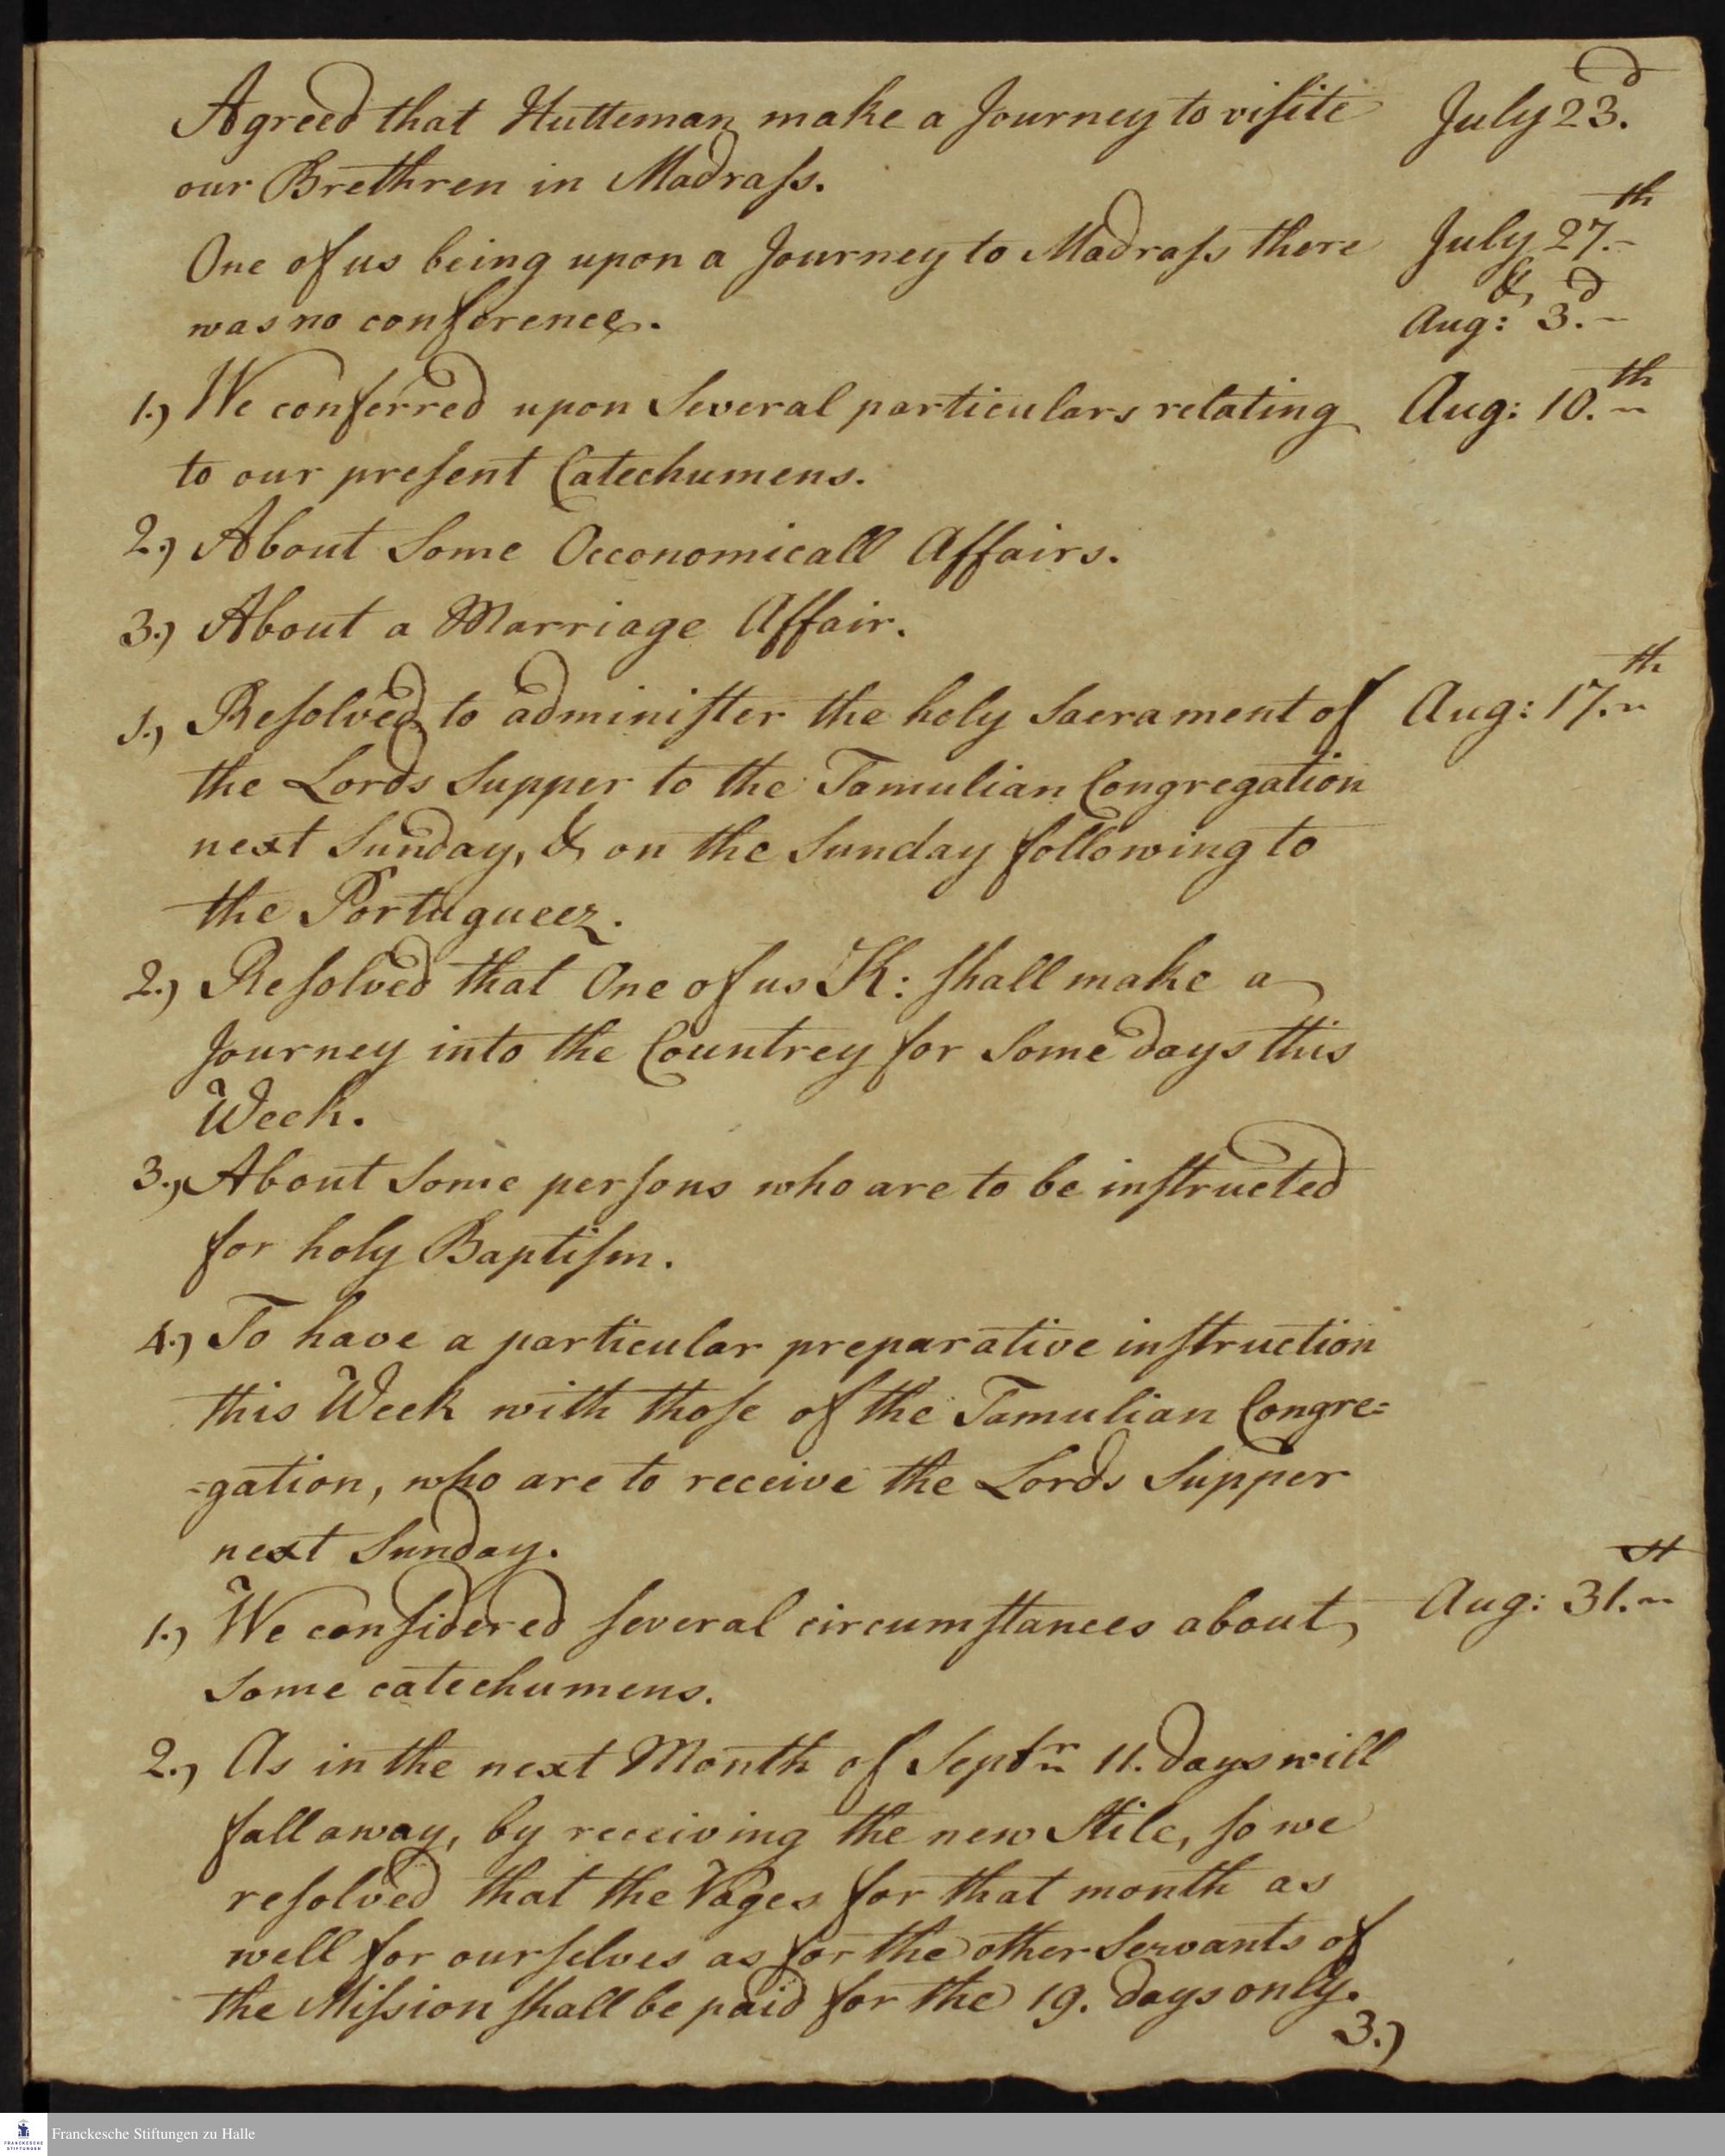 Agreed that Hutteman make a Journey to visite July 23.d
our Brethren in Madrass.
One of us being upon a Journey to Madrass there July 27.th
was no conference. & Aug: 3.d
1.) We conferred upon Several particulars relating Aug: 10.th
to our present Catechumens.
2.) About Some Oeconomicall Affairs.
3.) About a Marriage Affair.
1.) Resolved to administer the holy Sacrament of Aug: 17.th
the Lords Supper to the Tamulian Congregation
next Sunday, & on the Sunday following to
the Portugueez.
2.) Resolved that One of us K: shall make a
Journey into the Countrey for Some days this
Week.
3.) About Some persons who are to be instructed
for holy Baptism.
4.) To have a particular preparative instruction
this Week with those of the Tamulian Congre=
=gation, who are to receive the Lords Supper
next Sunday.
1.) We considered several circumstances about Aug: 31.st
Some catechumens.
2.) As in the next Month of Septr 11. days will
fall away, by receiving the new Stile, so we
resolved that the Vages for that month as
well for ourselves as for the other Servants of
the Mission shall be paid for the 19. days only.
3.)
FRANCKESCHE STIFTUNGEN
Franckesche Stiftungen zu Halle